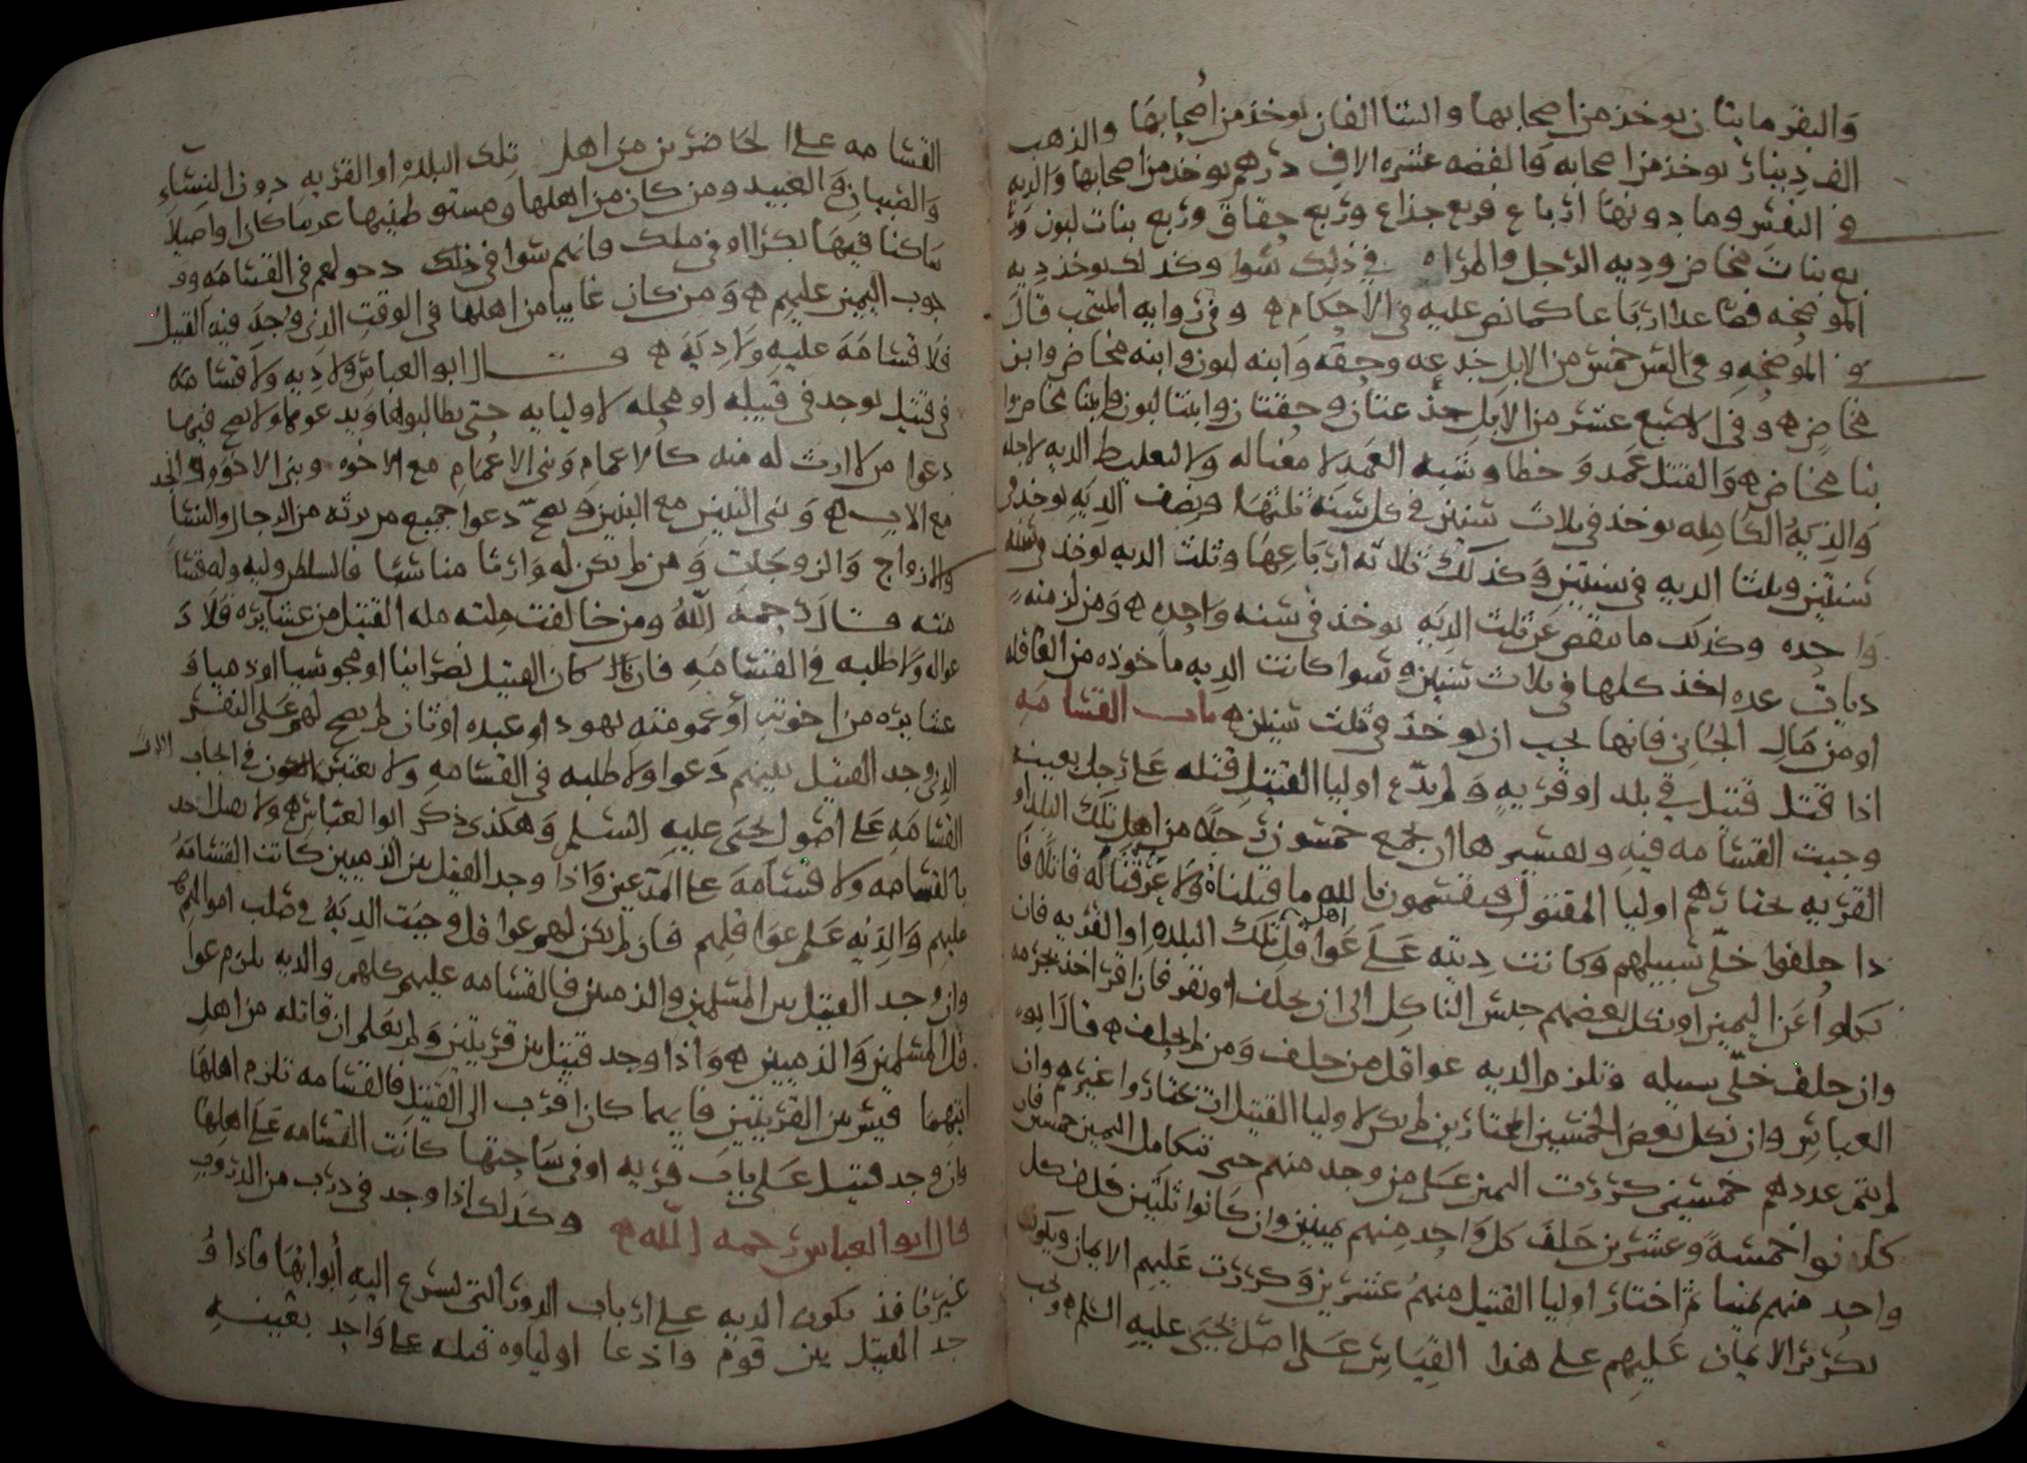 والبقر مايتان يوخذ من اصحابها والشا الفان يوخذ من أصحابها والذهب
الف دينار يوخذ من اصحابه والفضه عشره الاف درهم يوخذ من اصحابها والديه
في النفس وما دونها ارباع فربع جذاع وربع حقاق وربع بنات لبون ور
بع بنات مخاض وديه الرجل والمراه في ذلك سوا وكذلك يوخذ ديه
الموضحه فصاعدا ارباعا كما نص عليه في الاحكام ه وفي روايه المنتخب قال
في الموضحه وفي السن خمس من الابل جذعه وحقه وابنه لبون وابنه مخاض وابن
مخاض ه وفي الاصبع عشر من الابل جذعتان وحقتان وابنتا لبون وابنتا مخاض وا
بنا مخاض ه والقتل عمد وخطا وشبه العمد لا معنا له ولا تغليظ الديه لاجله
والديه الكامله يوخذ في ثلاث سنين في كل سنه ثلثها ونصف الديه يوخذ في
سنتين وثلثا الديه في سنتين وكذلك ثلاثه ارباعها وثلث الديه يوخذ في سنه
واحده وكذلك ما نقص عن ثلث الديه يوخذ في سنه واحده ه ومن لزمته
ديات عده اخذ كلها في ثلاث سنين ه سوا كانت الديه ماخوذه من العاقله
او من مال الجاني فانها يجب ان يوخذ في ثلث سنين ه باب القسامه
اذا قتل قتيل في بلد او قريه ولم يدّع اوليا القتيل قتله على رجل بعينه
وجبت القسامه فيه وتفسيرها ان يجمع خمسون رجلا من اهل تلك البلد او
القريه يختارهم اوليا المقتول فيقسمون بالله ما قتلناه ولا عرفنا له قاتلا فا
ذا حلفوا خلّى سبيلهم وكانت ديته على عواقل اهل تلك البلده او القريه فان
نكلوا عن اليمين او نكل بعضهم حبس الناكل الى ان يحلف او يقر فان اقر اخذ بجرمه
وان حلف خلّى سبيله وتلزم الديه عواقل من حلف ومن لم يحلف ه قال ابو
العباس وان نكل بعض الخمسين المختارين لم يكن لاوليا القتيل ان يختاروا غيرهم وان
لم يتم عددهم خمسين كررت اليمين على من وجد منهم حتى تتكامل اليمين خمسين فان
كانوا خمسة وعشرين حلف كل واحد منهم يمينين وان كانوا ثلثين حلف كل
واحد منهم يمينا ثم اختار اوليا القتيل منهم عشرين وكررت عليهم الايمان ويكون
تكرير الايمان عليهم على هذا القياس على اصل يحيى عليه السلم ه ويجب
القسامه على الحاضرين من اهل تلك البلده او القريه دون النساء
والصبيان والعبيد ومن كان من اهلها ومستوطنيها عربيا كان او اصيلا
ساكنا فيها بكرا او في ملك فانهم سوا في ذلك دخولهم في القسامه وو
جوب اليمين عليهم ه ومن كان غايبا من اهلها في الوقت الذي وجد فيه القتيل
فلا قسامة عليه ولا دية ه قال ابو العباس ولا ديه ولا قسامة
في قتيل يوجد في قبيله او محله لاوليايه حتى يطالبوا بها ويدعوها ولا يصح فيها
دعوا من لا ارث له منه كالاعمام وبني الاعمام مع الاخوه وبنوا الاخوه والجد
مع الاب ه وبني البنين مع البنين وتصحّ دعوا جميع من يرثه من الرجال والنسا
والازواج والزوجات ومن لم يكن له وارثا مناسبا فالسلطان وليه وله قسا
مته قال رحمه الله ومن خالفت ملته مله القتيل من عشايره فلا د
عوا له ولا طلبه في القسامه فان كان القتيل نصرانيا او مجوسيا او ذميا و
عشايره من اخوته أو عمومته يهود او عبده اوثان لم يصح لهم على النفس
الذي وجد القتيل بينهم دعوا ولا طلبه في القسامه ولا يعتبر في ايجاب
القسامه على اصول يحيى عليه السلم وهكذى ذكر ابو العباس ه ولا يقتل احد
بالقسامه ولا قسامة على المدعين واذا وجد القتيل بين الذميين كانت القسامة
عليهم والديه على عواقلهم فان لم يكن لهم عواقل وجبت الدية في صلب اموالهم ه
وان وجد القتيل بين المسلمين والذميين فالقسامه عليهم كلهم والديه يلزم عوا
قل المسلمين والذميين ه واذا وجد قتيل بين قريتين ولم يعلم ان قاتله من اهل
ايتهما قيس بين القريتين فايهما كان اقرب الى القتيل فالقسامه تلزم اهلها
فان وجد قتيل على باب قريه او في ساحتها كانت القسامه على اهلها
قال ابو العباس رحمه الله ه وكذلك اذا وجد في درب من الدروب
غير نافذ يكون الديه على ارباب الدور التي تشرع اليه أبوابها فاذا و
جد القتيل بين قوم وادعا اولياوه قتله على واحد بعينه